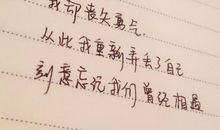 我却丧失勇气
从此我重新弄丢了自己
刻意忘记我们曾经相遇